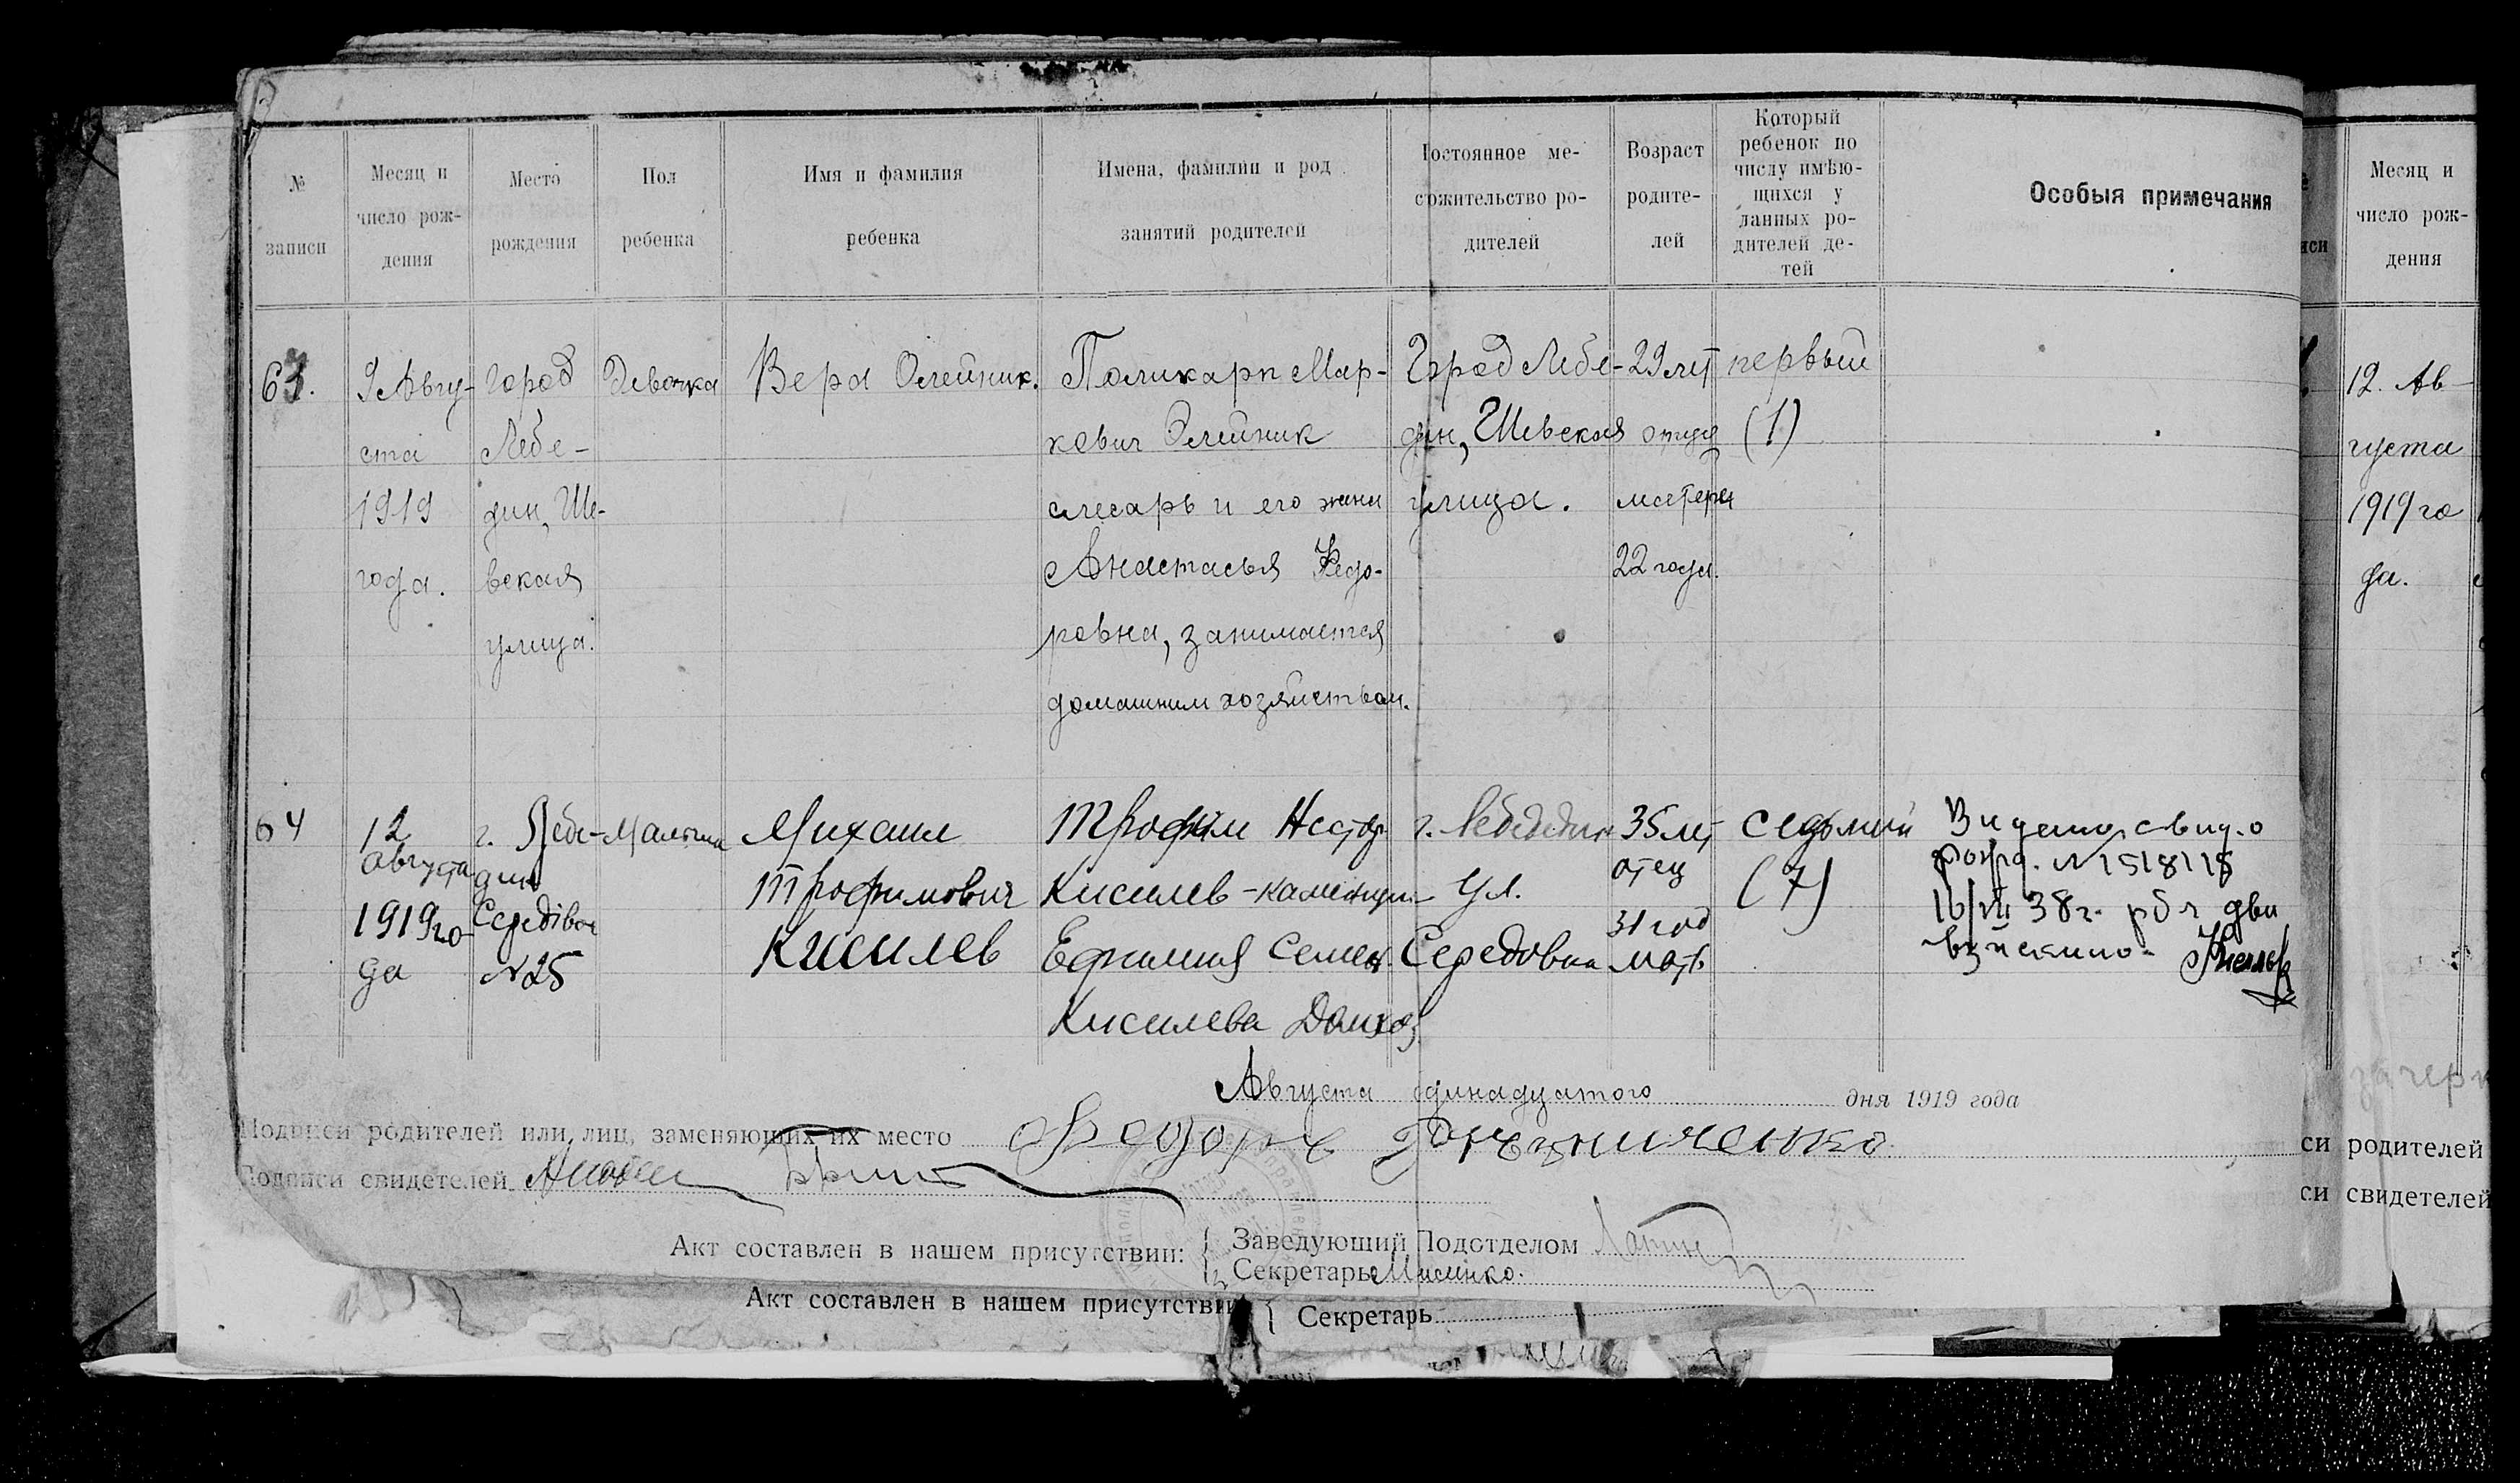 № записи
Месяц и число рождения
Место рождения
Пол ребенка
Имя и фамилия ребенка
Имена, фамилии и род занятий родителей
Постоянное место-
жительство ро-
дителей
Возраст родите-
лей
Который
ребенок по
числу имѣю-
щихся у
данных ро-
дителей де-
тей
Особыя примечания
63.
9 Авгу-
ста
1919
года.
город
Лебе-
дин, Ше-
вская
улица.
Девочка
Вера Олейник.
Поликарп Мар-
кович Олейник
слесарь и его жена
Анастасья Федо-
ровна, занимается
домашним хозяйством.
Город Лебе-
дин, Шевская
улица.
29 лет
отцу
матери
22 года.
первый
(1)
64
12
августа
1919 го-
да
г. Лебе-
дин
Середівка
№25
Мальчик
Михаил
Трофимович
Кисилев
Трофим Нестор.
Кисилев - каменщик
Ефимия Семен.
Кисилева Домхоз.
г. Лебедин
ул.
Середовка
35 лет
отец
31 год
мать
седьмый
(7)
Видено свид. о
рожд. №1518118
16/VII 38г.
Августа одинадцатого дня 1919 года
Подписи родителей или лиц, заменяющих их место Федоръ
Подписи свидетелей
Акт составлен в нашем присутствии: { Заведующий Подотделом
Секретарь Мисинко.
Акт составлен в нашем присутствии { Секретарь
Месяц и
число рож-
дения
12. Ав-
густа
1919 го
да.
си родителей
си свидетелей